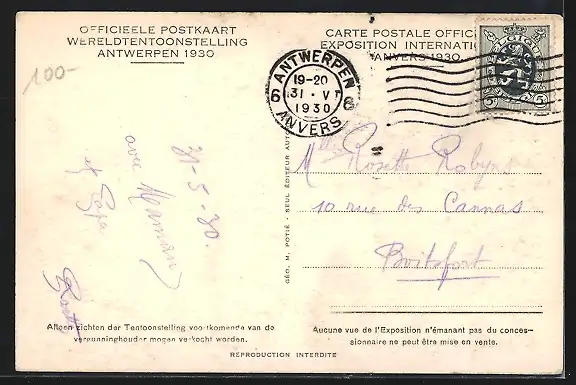 OFFICIEELE POSTKAART
WERELDTENTOONSTELLING
ANTWERPEN 1930
CARTE POSTALE OFFIC
EXPOSITION INTERNATI
ANVERS 1930
100-
ANTWERPEN
19-20
31·VI
1930
6 6
ANVERS
31-5-30.
avec Maman
et Papa
Mlle Rosette Robyns
10 rue des Cannas
Boitsfort
GÉO. M. POTIÉ - SEUL ÉDITEUR AUTO
Alleen zichten der Tentoonstelling voortkomende van de
vergunninghouder mogen verkocht worden.
Aucune vue de l'Exposition n'émanant pas du conces-
sionnaire ne peut être mise en vente.
REPRODUCTION INTERDITE